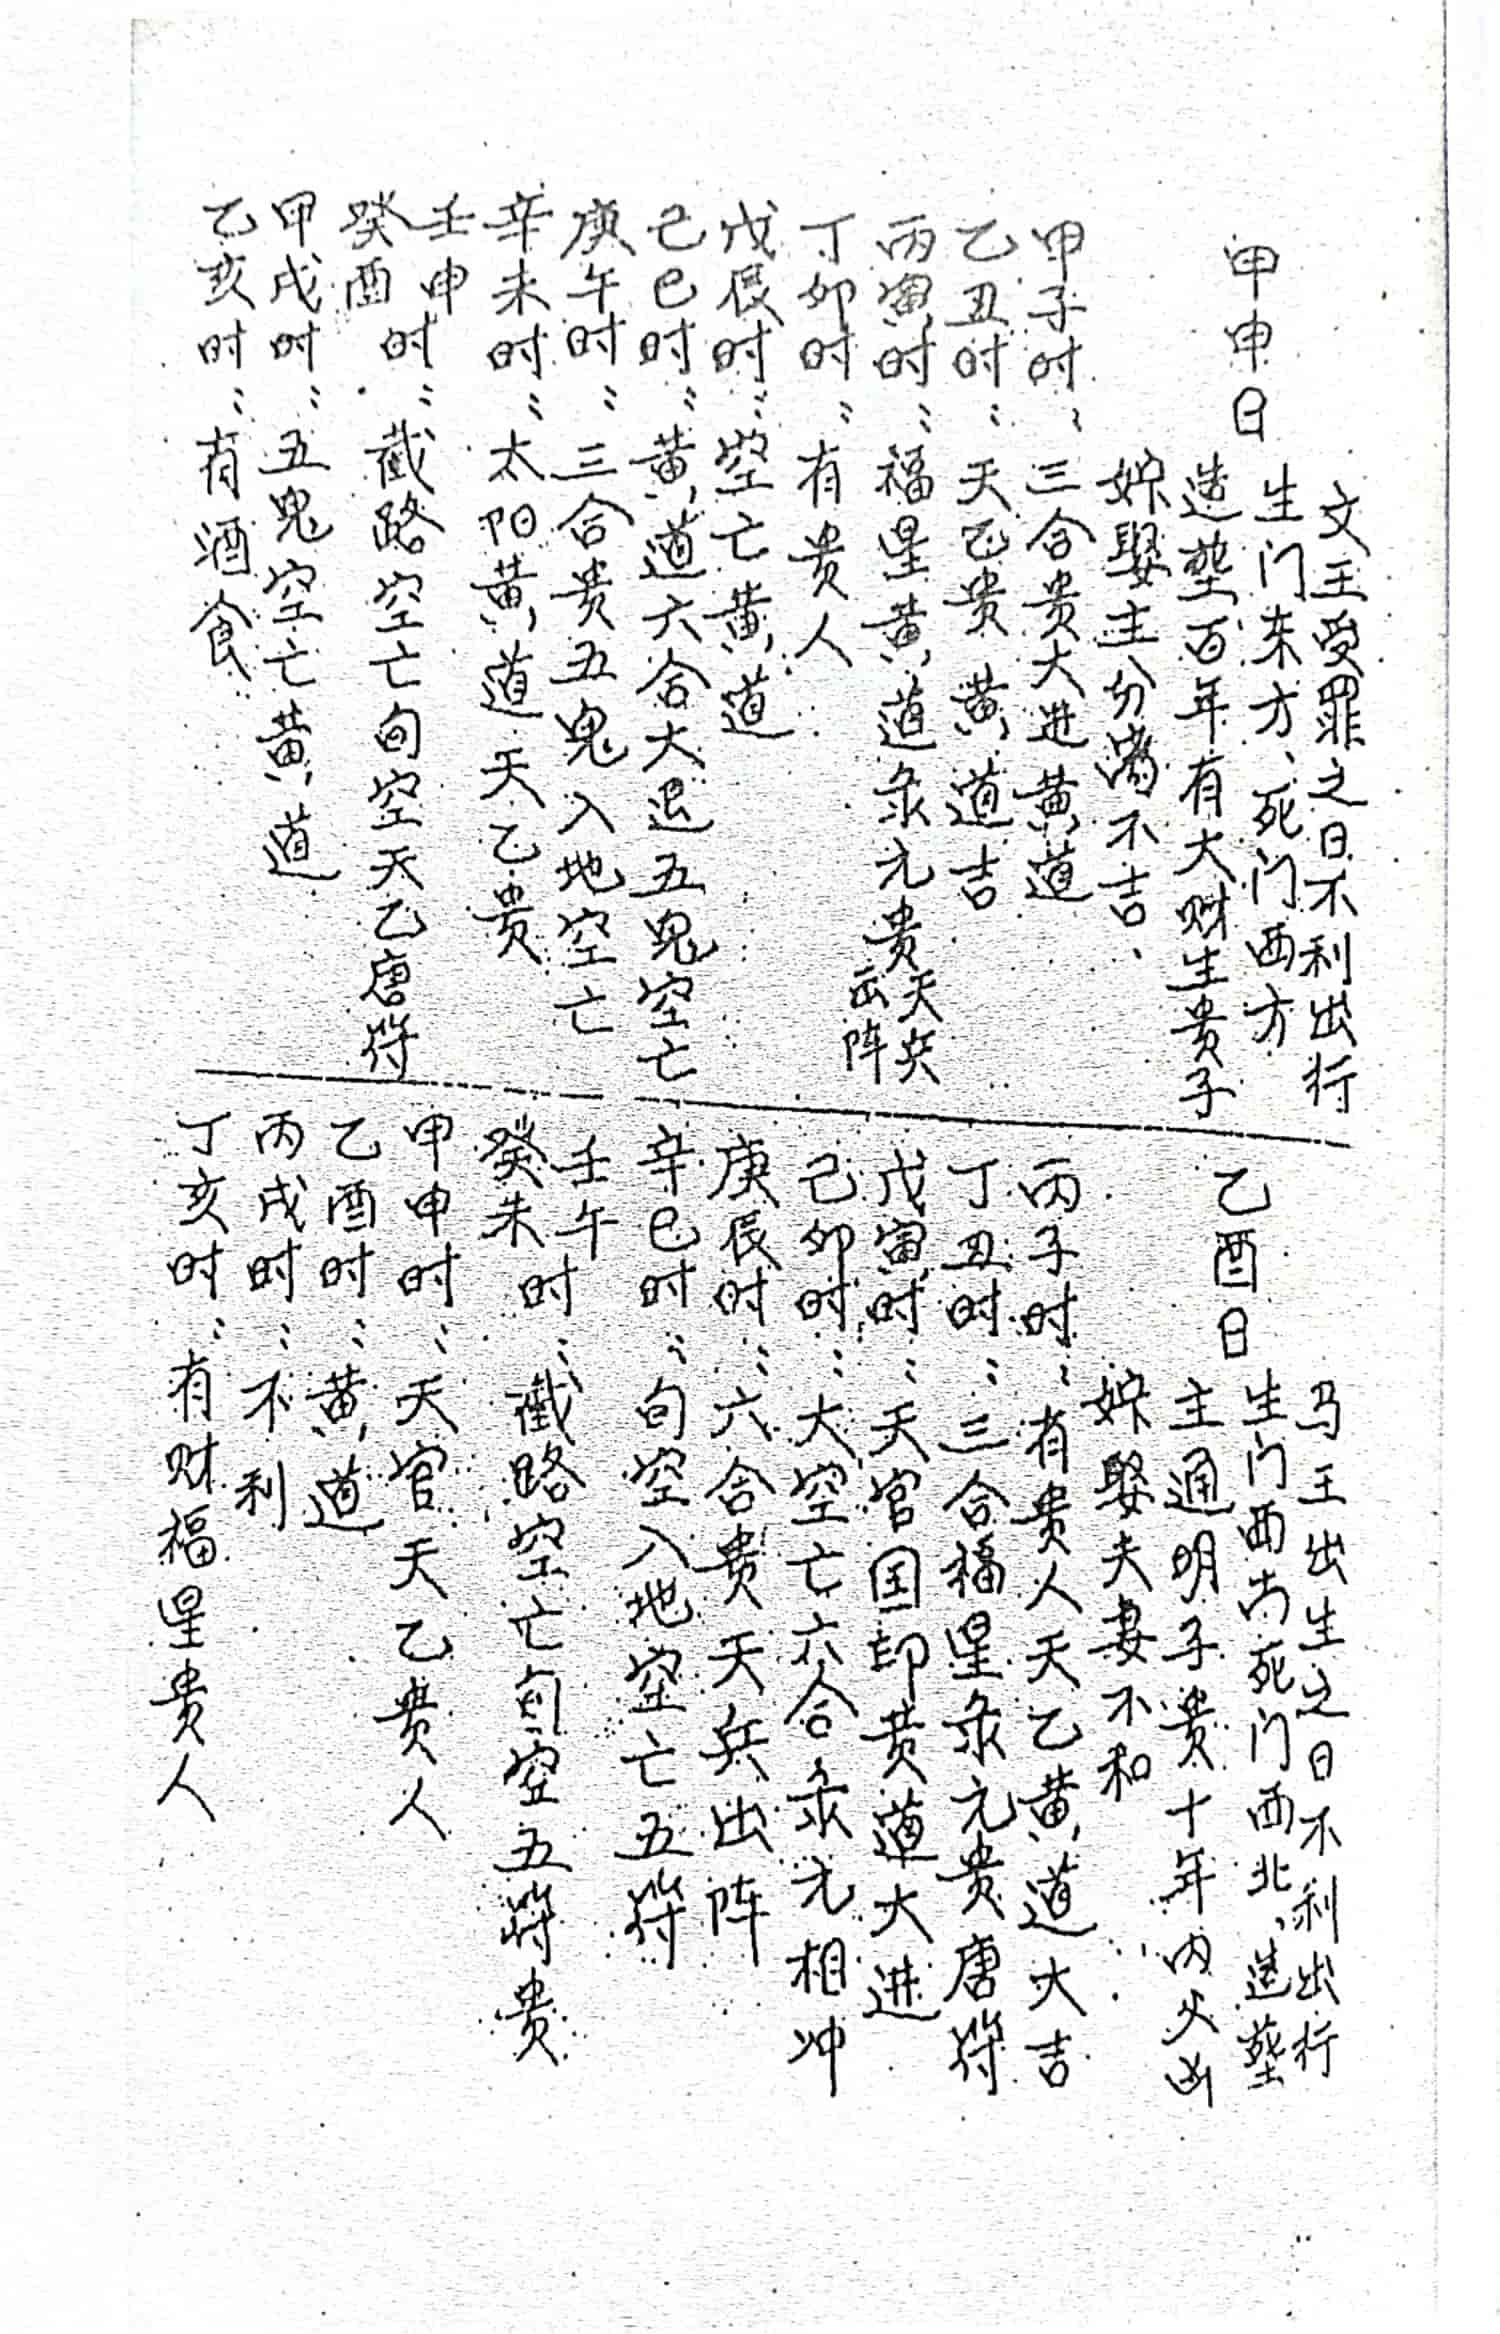 甲申日
文王受罪之日不利出行
生门东方、死门西方
造葬百年有大财生贵子
嫁娶主分离不吉、
甲子时：三合贵大进黄道
乙丑时：天乙贵黄道吉
丙寅时：福星黄道彔元贵天兵出阵
丁卯时：有贵人
戊辰时：空亡黄道
己巳时：黄道六合大退五鬼空亡
庚午时：三合贵五鬼入地空亡
辛未时：太阳黄道天乙贵
壬申癸酉时：截路空亡旬空天乙唐符
甲戌时：五鬼空亡黄道
乙亥时：有酒食
乙酉日
马王出生之日不利出行
生门西南死门西北、造葬
主通明子贵十年内火凶
嫁娶夫妻不和
丙子时：有贵人天乙黄道大吉
丁丑时：三合福星彔元贵唐符
戊寅时：天官国印黄道大进
己卯时：大空亡六合彔元相冲
庚辰时：六合贵天兵出阵
辛巳时：旬空入地空亡五符
壬午癸未时：截路空亡旬空五符贵
甲申时：天官天乙贵人
乙酉时：黄道
丙戌时：不利
丁亥时：有财福星贵人